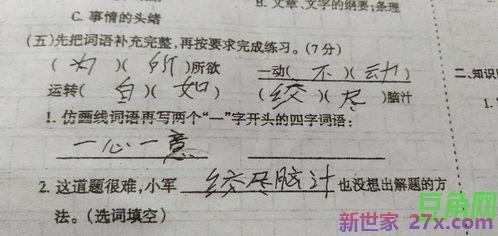 C. 事情的头绪
B. 文章、文字的纲要;条理
(五)先把词语补充完整,再按要求完成练习。(7分)
(为)(所)所欲 一动(不)(动)
运转(自)(如) (绞)(尽)脑汁
二、知识
1. 仿画线词语再写两个“一”字开头的四字词语:
1.
一心一意
2. 这道题很难,小军 绞尽脑汁 也没想出解题的方
法。(选词填空)
豆角网
新世家 27x.com